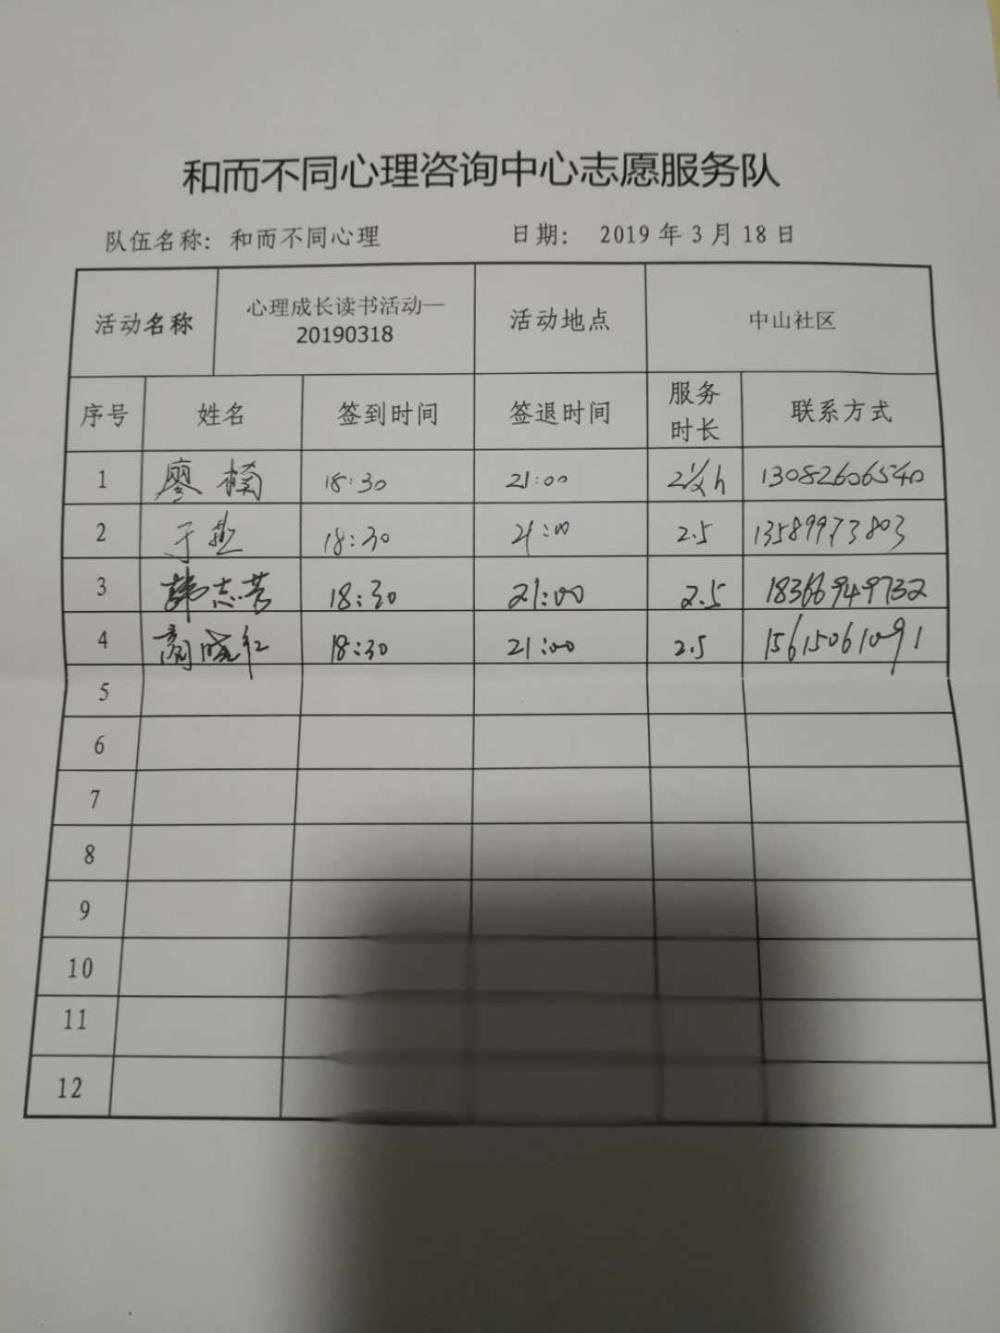 和而不同心理咨询中心志愿服务队
队伍名称: 和而不同心理 日期: 2019 年 3 月 18 日
活动名称 心理成长读书活动—20190318 活动地点 中山社区
序号 姓名 签到时间 签退时间 服务时长 联系方式
1 廖楠 18:30 21:00 2½h 13082606540
2 于燕 18:30 21:00 2.5 13589973803
3 韩志芳 18:30 21:00 2.5 18366949732
4 晓红 18:30 21:00 2.5 15615061091
5
6
7
8
9
10
11
12